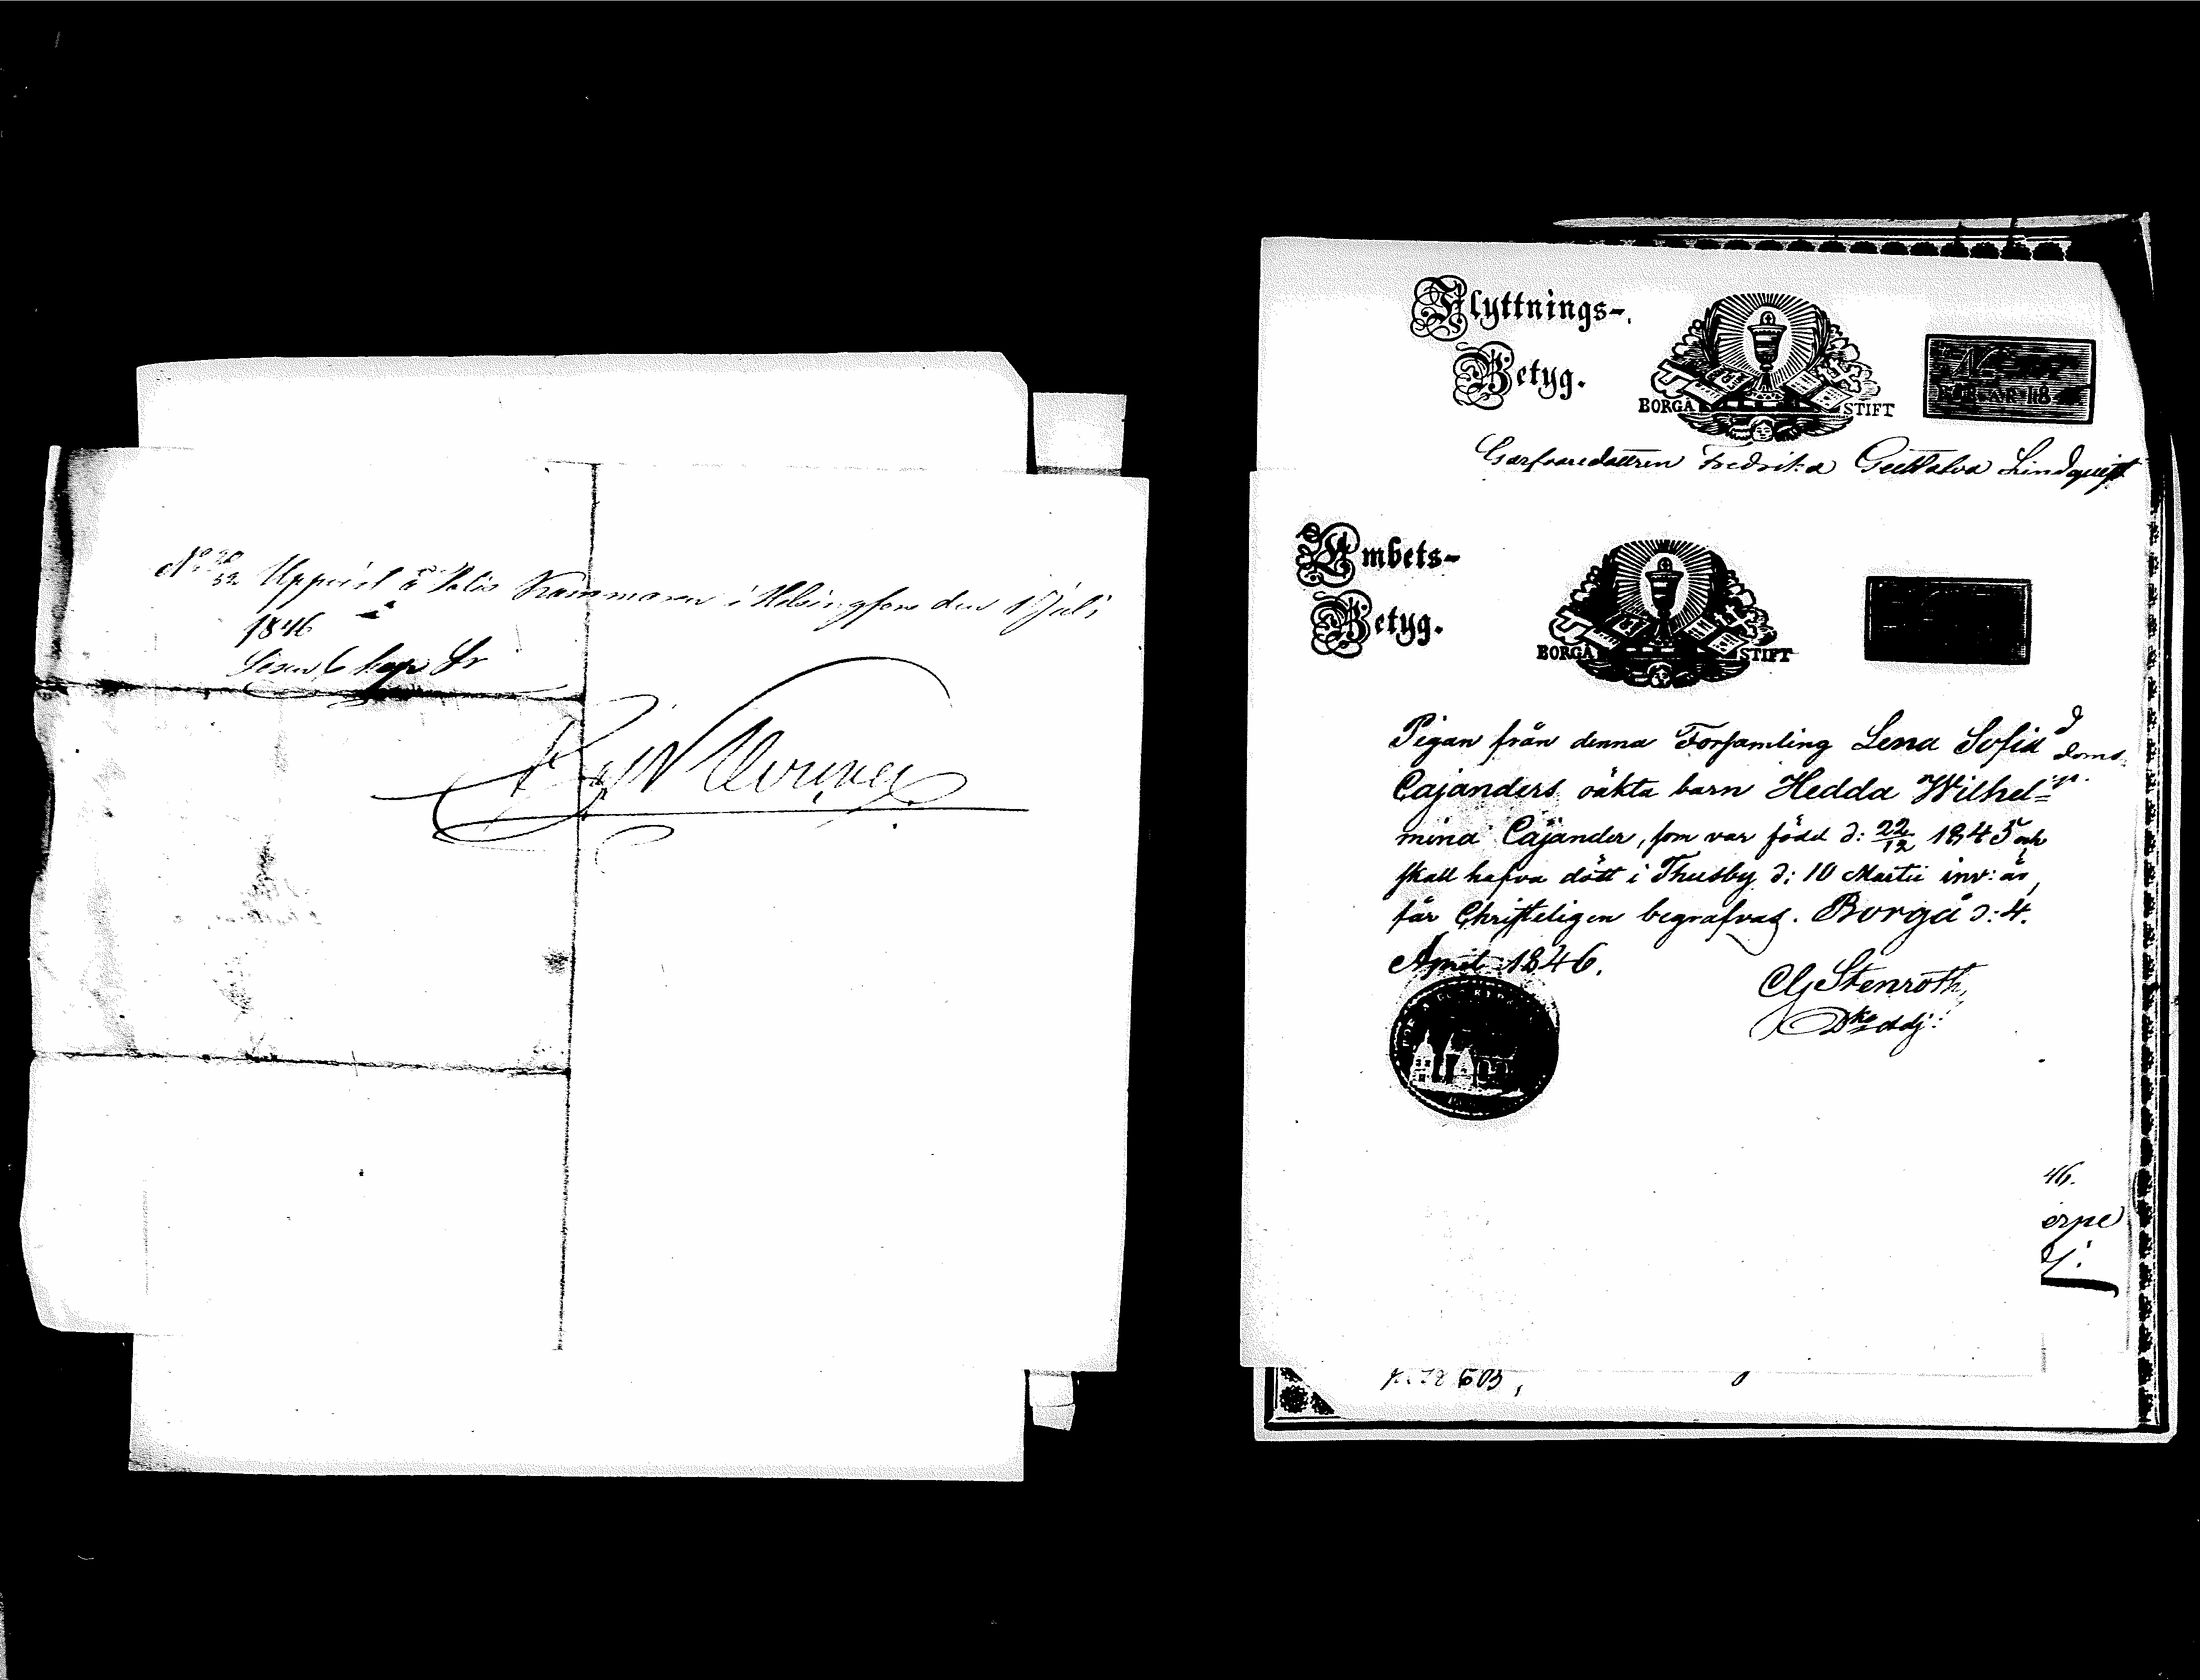 Uppvist å Polis Kammaren i Helsingfors den 1 Juli
1846
Lösen 6 kop Sr
Flyttnings-
Betyg.
BORGÅ STIFT
Garfvaredottren Fredrika Gustafva Lindqvist
Embets-
Betyg.
BORGÅ STIFT
Pigan från denna Forsamling Lena Sofia
Cajanders oäkta barn Hedda Wilhel=
mina Cajander, som var född d: 22/12 1845 och
skall hafva dött i Thusby d: 10 Martii inv: år,
får Christeligen begrafvas. Borgå d: 4.
April 1846.
CG Stenroth,
46.